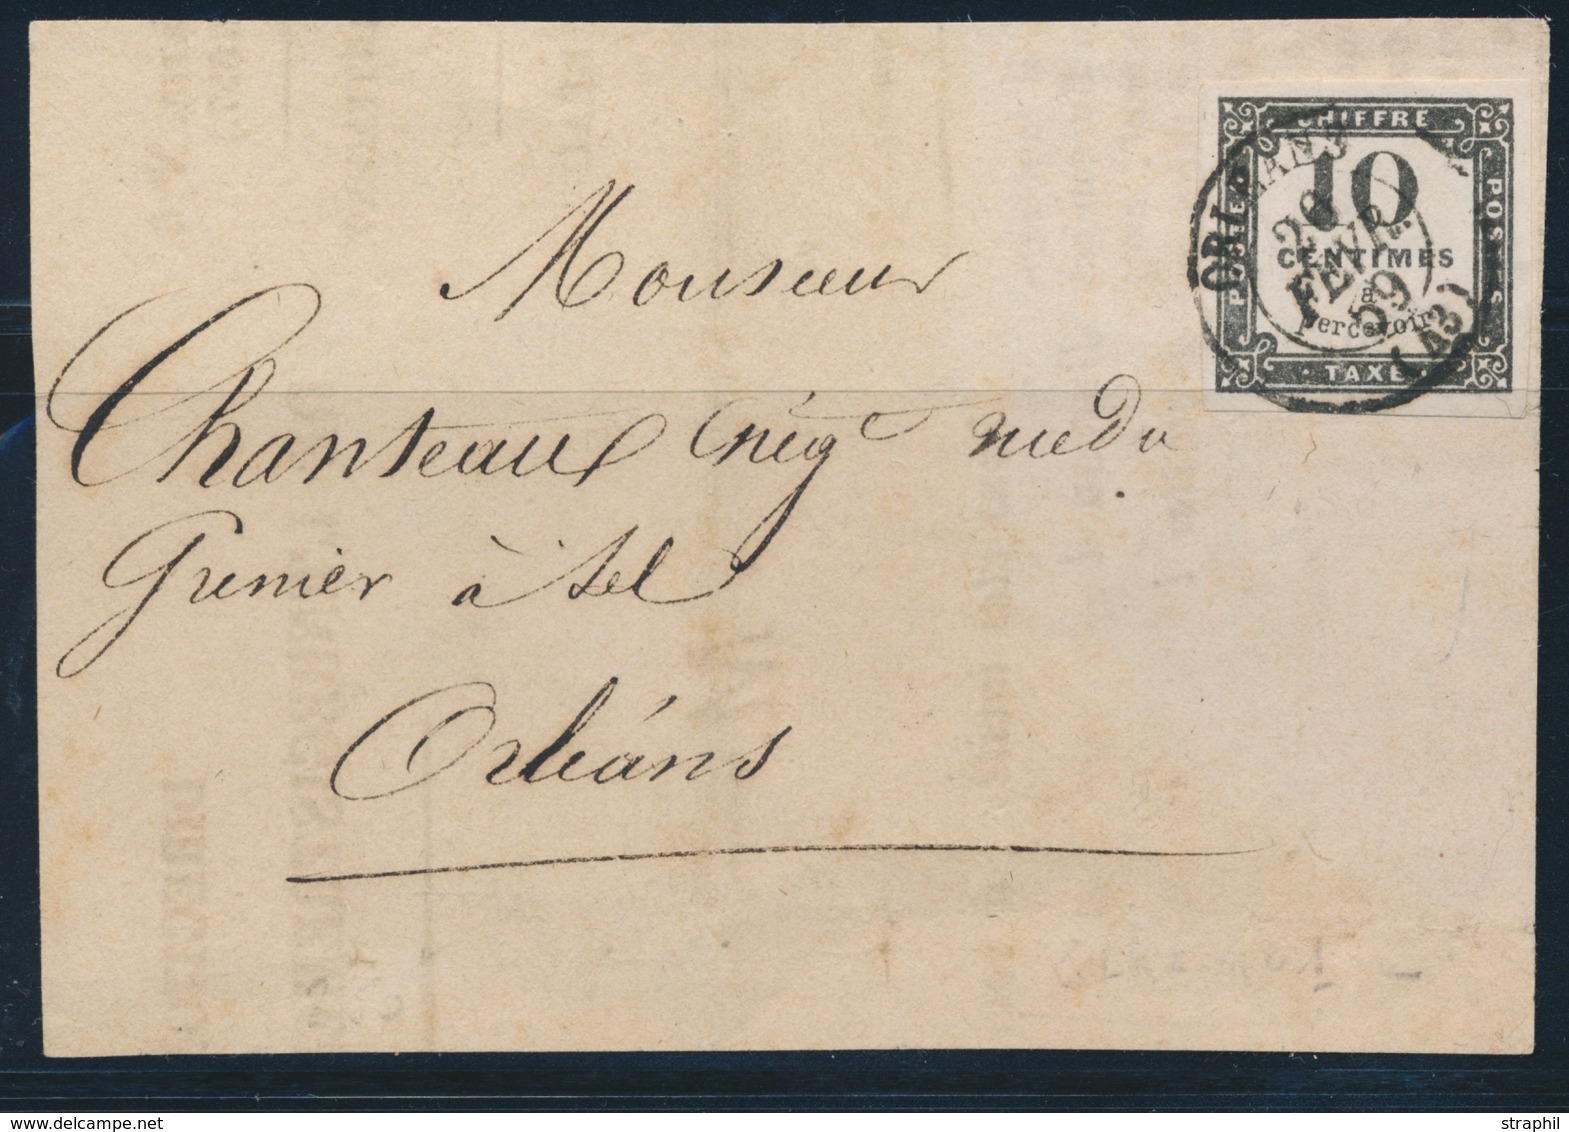 CHIFFRE
10
CENTIMES
à
percevoir
TAXE
POSTES
ORLÉANS
20
FEVR.
59
(43)
Monsieur
Chanteaux Nég.t rue du
Grenier à Sel
Orléans
www.delcampe.net
straphil